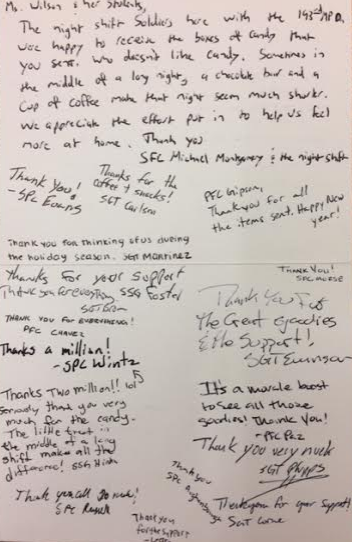 Ms. Wilson & her students,
The night shift Soldiers here with the 193rd M.P.D.
were happy to receive the boxes of candy that
you sent. Who doesn't like candy. Sometimes in
the middle of a long night, a chocolate bar and a
cup of coffee make that night seem much shorter.
We appreciate the effort put in to help us feel
more at home. Thank you
SFC Michael Montgomery & the night shift
Thank you!
- SPC Evans
Thanks for the
coffee & snacks!
SGT
PFC Gipson,
Thank you for all
the items sent. Happy New
year!
Thank you for thinking of us during
the holiday season. SGT Martinez
Thanks For your Support
SSG Foster
Thank you for everything
Thank You!
SPC
THANK YOU FOR EVERYTHING!
PFC CHAVEZ
Thank You For
The Great goodies
& the Support!
SGT
Thanks a million!
- SPC Wintz
Thanks Two million!! lol
Seriously thank you very
much for the candy.
The little treat in
the middle of a long
shift make all the
difference! SSG
It's a morale boost
to see all those
goodies! Thank You!
- PFC Paz
Thank you very much
SGT Phipps
Thank you
SPC
Thank you all so much!
SPC Russell
Thank you
for the support
Thank you for your Support!
SGT